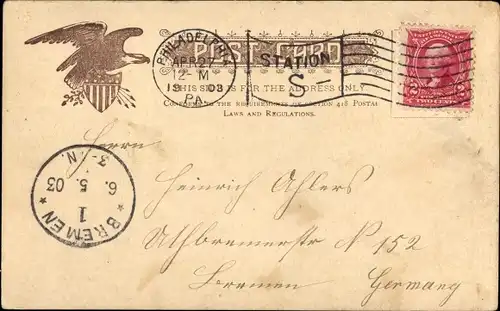 POST CARD
THIS SIDE IS FOR THE ADDRESS ONLY
CONFORMS TO THE REQUIREMENTS OF SECTION 418 POSTAL
LAWS AND REGULATIONS.
PHILADELPHIA
APR 27
12-M
1903
PA.
STATION
S
2 2
TWO CENTS
BREMEN
1
6.5.03
3-4N.
Herrn
Heinrich Ahlers
Uthbremerstr N 152
Bremen Germany